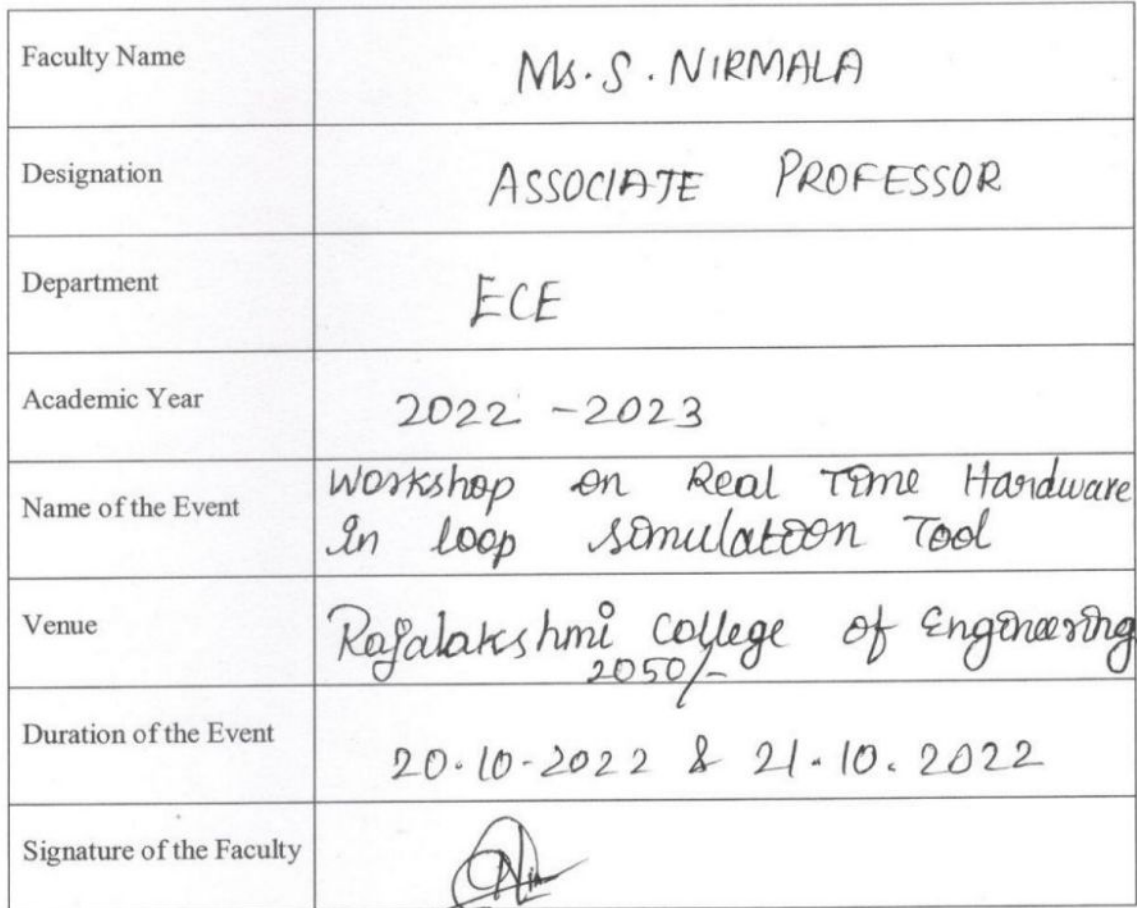 Faculty Name
Ms. S. NIRMALA
Designation
ASSOCIATE PROFESSOR
Department
ECE
Academic Year
2022 - 2023
Name of the Event
Workshop on Real Time Hardware
In loop simulation Tool
Venue
Rajalakshmi College of Engineering
2050/-
Duration of the Event
20.10.2022 & 21.10.2022
Signature of the Faculty